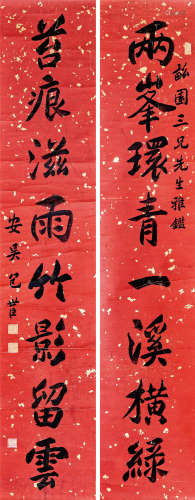 韵圃三兄先生雅鑑
兩峯環青一溪橫綠
苔痕滋雨竹影留雲
安吳包世臣